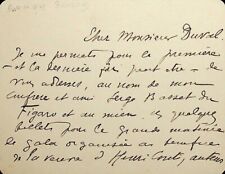 Cher Monsieur Duval
Je me permets pour la première
et la dernière fois peut-être - de
vous adresser, au nom de mon
confrère et ami Serge Basset du
Figaro et au mien, quelques
billets pour la grande matinée
de gala organisée au bénéfice
de la veuve d'Henri